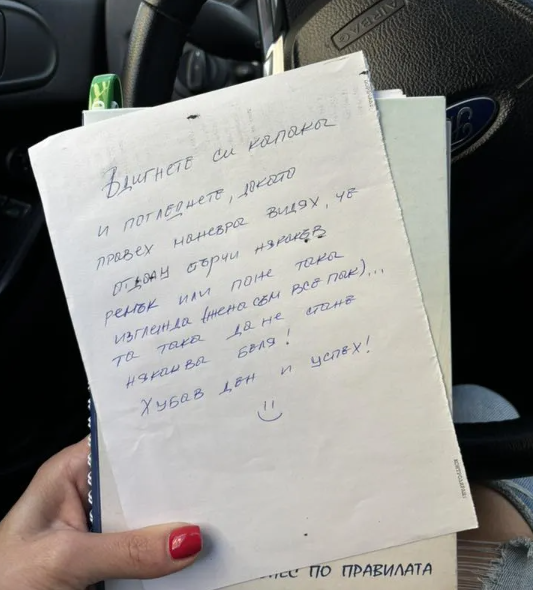 Вдигнете си капака
и погледнете, докато
правех маневра видях, че
отдолу стърчи някакъв
ремък или поне така
изглежда (жена съм все пак)...
та така да не стане
някаква беля!
Хубав ден и успех!
AIRBAG
ПО ПРАВИЛАТА